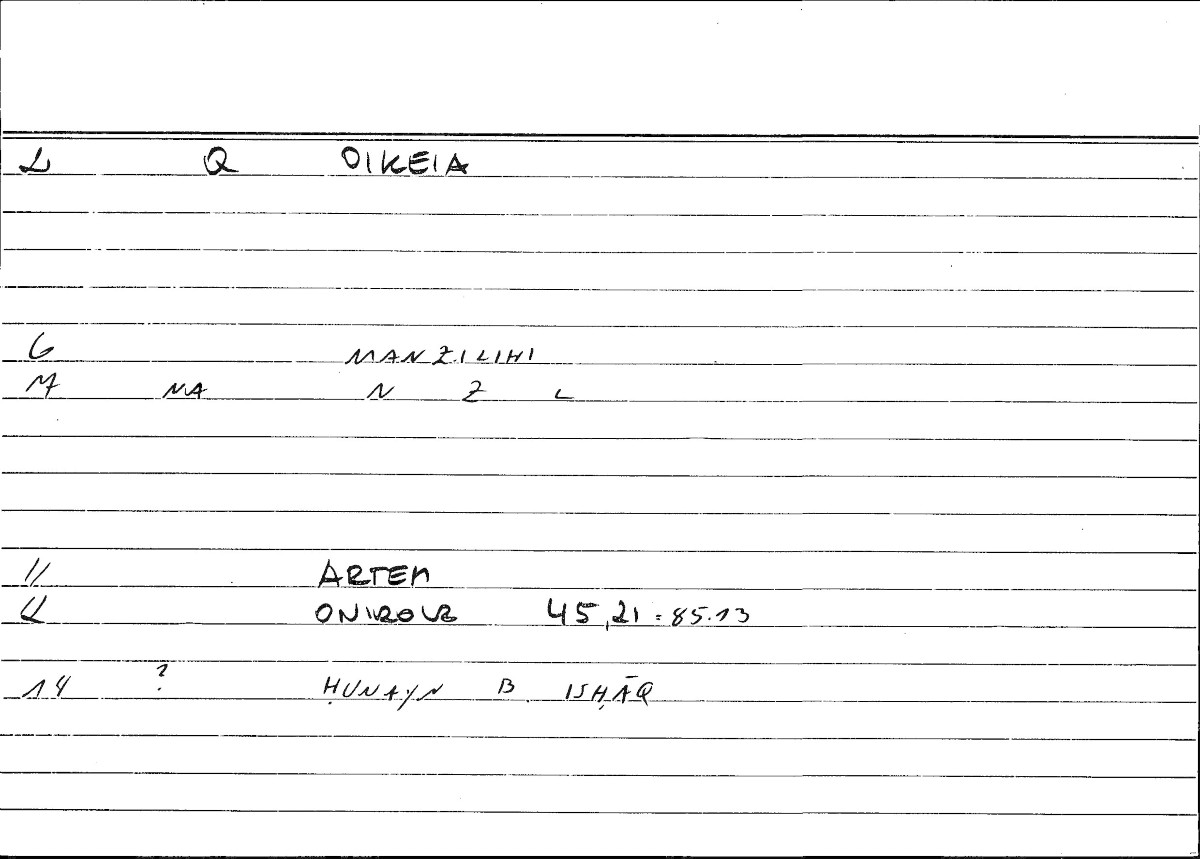 L Q OIKEIA
G MANZILIHI
M MA N Z L
11 ARTEM
ONIROCR 45,21 = 85.13
14 ? ḤUNAYN B. ISḤĀQ